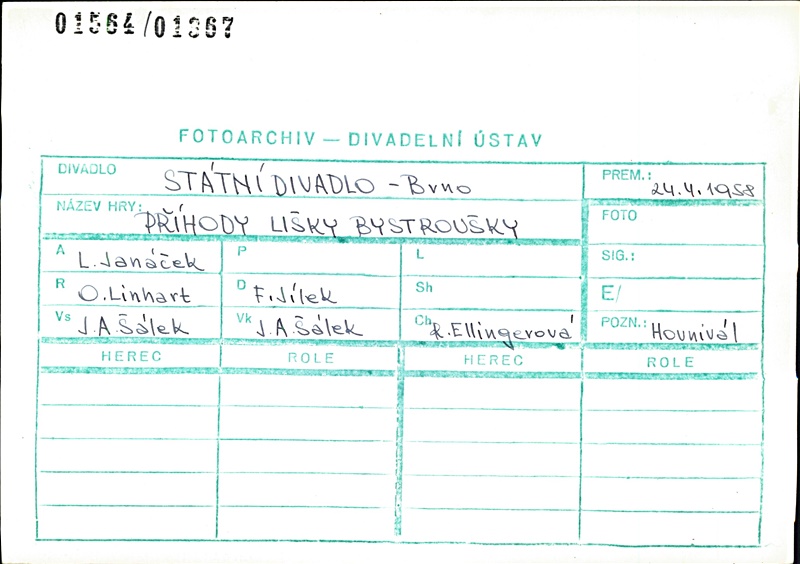 01564/01367
FOTOARCHIV — DIVADELNÍ ÚSTAV
DIVADLO STÁTNÍ DIVADLO - Brno PREM.: 24.4.1958
NÁZEV HRY: PŘÍHODY LIŠKY BYSTROUŠKY FOTO
A L. Janáček P L SIG.:
R O. Linhart D F. Jílek Sh E/
Vs J.A. Šálek Vk J.A. Šálek Ch R. Ellingerová POZN.: Hounivál
HEREC ROLE HEREC ROLE